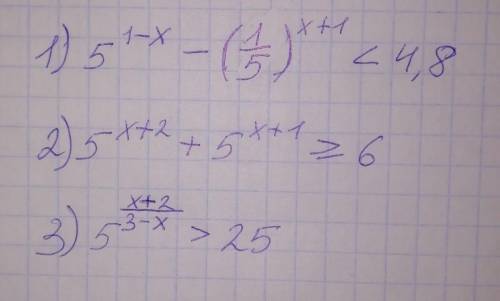 1) 5^{1-x} - (1/5)^{x+1} < 4,8
2) 5^{x+2} + 5^{x+1} ≥ 6
3) 5^{\frac{x+2}{3-x}} > 25